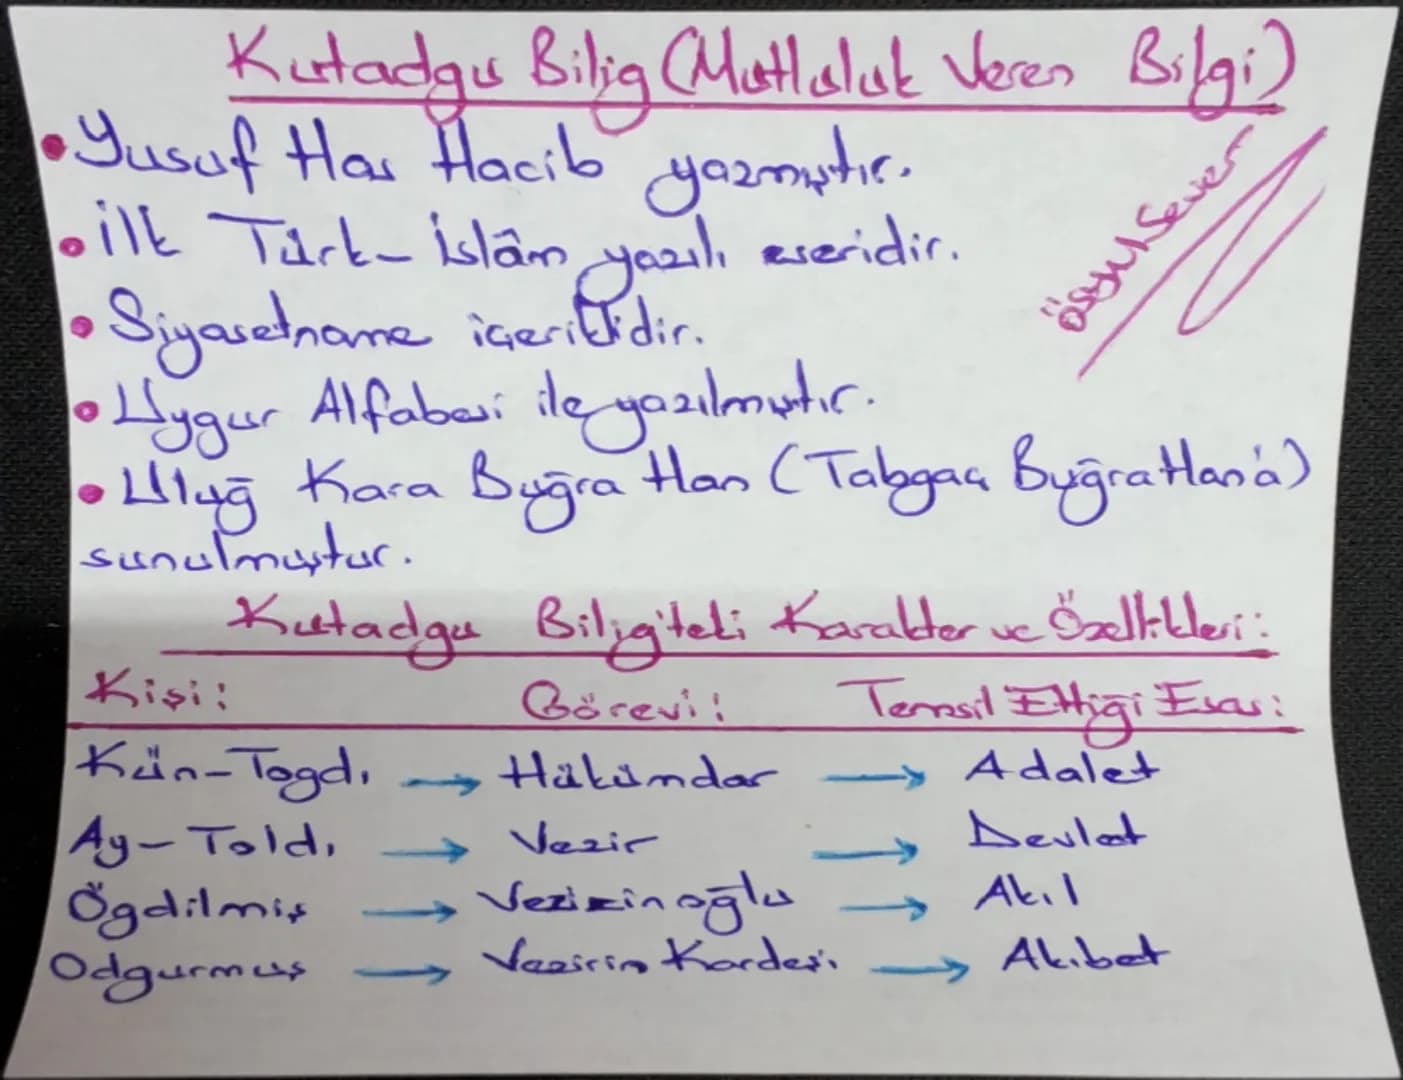 Kutadgu Bilig (Mutluluk Veren Bilgi)
• Yusuf Has Hacib yazmıştır.
• İlk Türk-İslâm yazılı eseridir.
ösym/Sever
• Siyasetname içeriklidir.
• Uygur Alfabesi ile yazılmıştır.
• Uluğ Kara Buğra Han (Tabgaç Buğra Han'a)
sunulmuştur.
Kutadgu Bilig'teki Karakter ve Özellikleri:
Kişi: Görevi: Temsil Ettiği Esas:
Kün-Togdı → Hükümdar → Adalet
Ay-Toldı → Vezir → Devlet
Ögdilmiş → Vezirin oğlu → Akıl
Odgurmuş → Vezirin Kardeşi → Akıbet